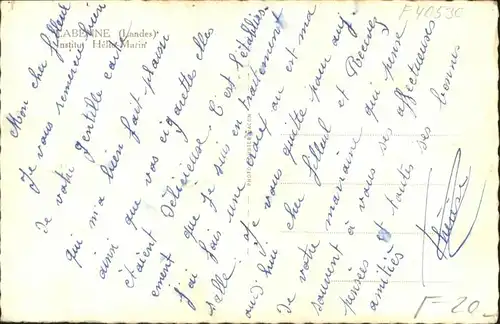 LABENNE (Landes)
Institut Hélio-Marin
F 40530
Mon cher filleul
Je vous remercie bien
de votre gentille carte
qui m'a bien fait plaisir
ainsi que vos cigarettes elles
étaient délicieuses. C'est l'établiss-
ement que je suis en traitement
j'ai fais une croix ou est ma
salle. Je vous quitte pour auj-
ourd'hui cher filleul et Recevez
de votre marraine qui pense
souvent à vous ses affectueuses
pensées et toutes ses bonnes
amitiés
F-20-